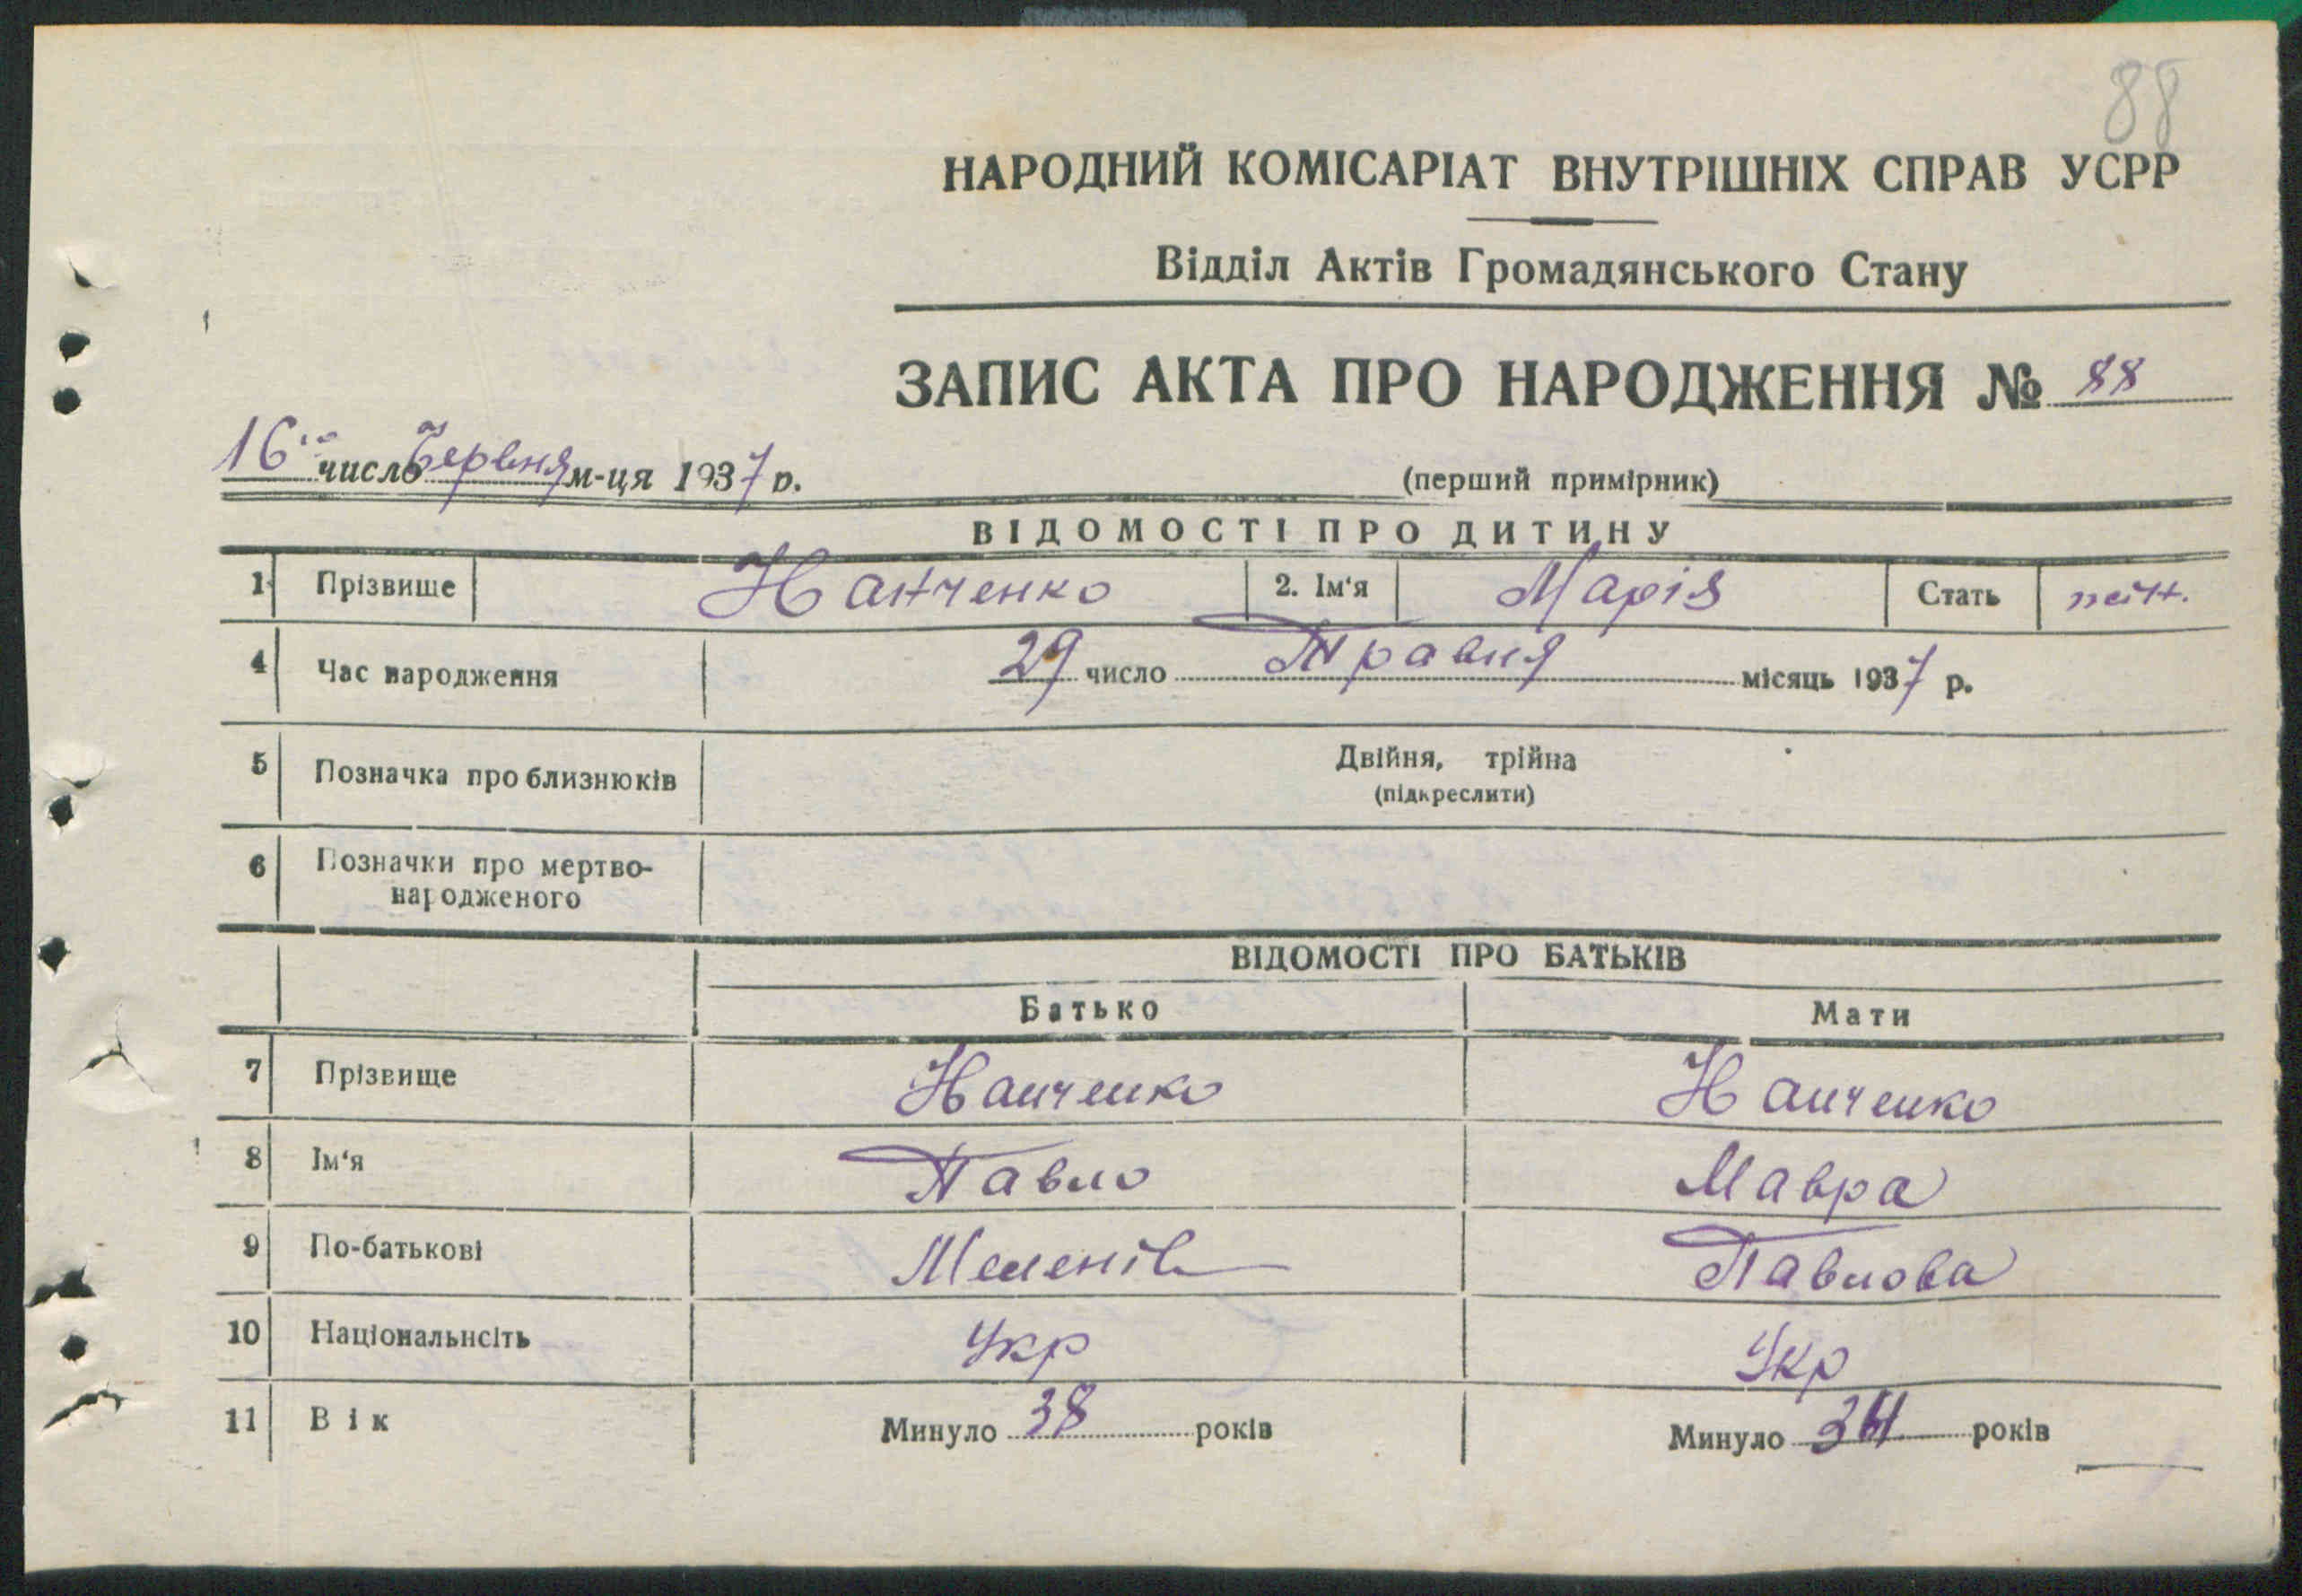 88
НАРОДНИЙ КОМІСАРІАТ ВНУТРІШНІХ СПРАВ УСРР
Відділ Актів Громадянського Стану
ЗАПИС АКТА ПРО НАРОДЖЕННЯ № 88
16 число Червня м-ця 1937 р.
(перший примірник)
ВІДОМОСТІ ПРО ДИТИНУ
1 Прізвище Нанченко 2. Ім'я Марія Стать
4 Час народження 29 число Травня місяць 1937 р.
5 Позначка про близнюків Двійня, трійна
(підкреслити)
6 Позначки про мертво-
народженого
ВІДОМОСТІ ПРО БАТЬКІВ
Батько Мати
7 Прізвище Нанченко Нанченко
8 Ім'я Павло Мавра
9 По-батькові Павлова
10 Національнсіть Укр Укр
11 Вік Минуло 38 років Минуло років